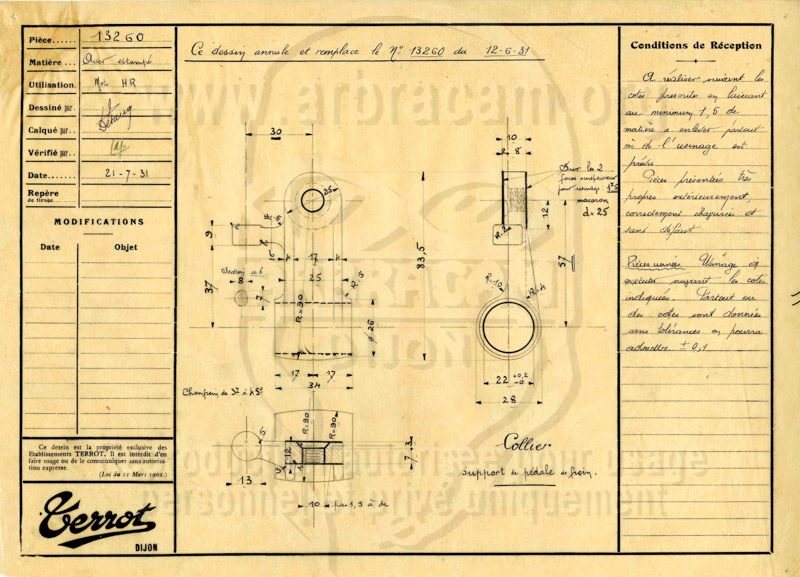 Pièce...... 13260
Matière... Acier estampé
Utilisation. Moto HR
Dessiné par.
Calqué par..
Vérifié par..
Date........ 21-7-31
Repère
de tirage.
MODIFICATIONS
Date Objet
Ce dessin est la propriété exclusive des
Etablissements TERROT. Il est interdit d'en
faire usage ou de le communiquer sans autorisa-
tion expresse.
(Loi du 11 Mars 1902.)
Terrot
DIJON
Ce dessin annule et remplace le N° 13260 du 12-6-31
30
25
9
37
Section a b
8
7
17
25
R=5
R=90
ø 26
83,5
17 17
34
Chanfrein de 3% à 45°
5
13
12
R=90
R=90
7
3
10 pas 1,5 à dr
10
8
Sur les 2
faces
pour usinage 1,5
macaron
d=25
12
57
R=2
R=10
R=4
22 +0,2 -0
28
Collier
support de pédale de frein.
Conditions de Réception
A réaliser suivant les
cotes prescrites en laissant
au minimum 1,5 de
matière à enlever partout
où de l'usinage est
prévu
Pièces présentées très
propres extérieurement,
correctement ébavurées et
sans défaut
Pièces usinées Usinage
exécuté suivant les cotes
indiquées. Partout où
des cotes sont données
sans tolérances on pourra
admettre ± 0,1
production autorisée pour usage
personnel et privé uniquement